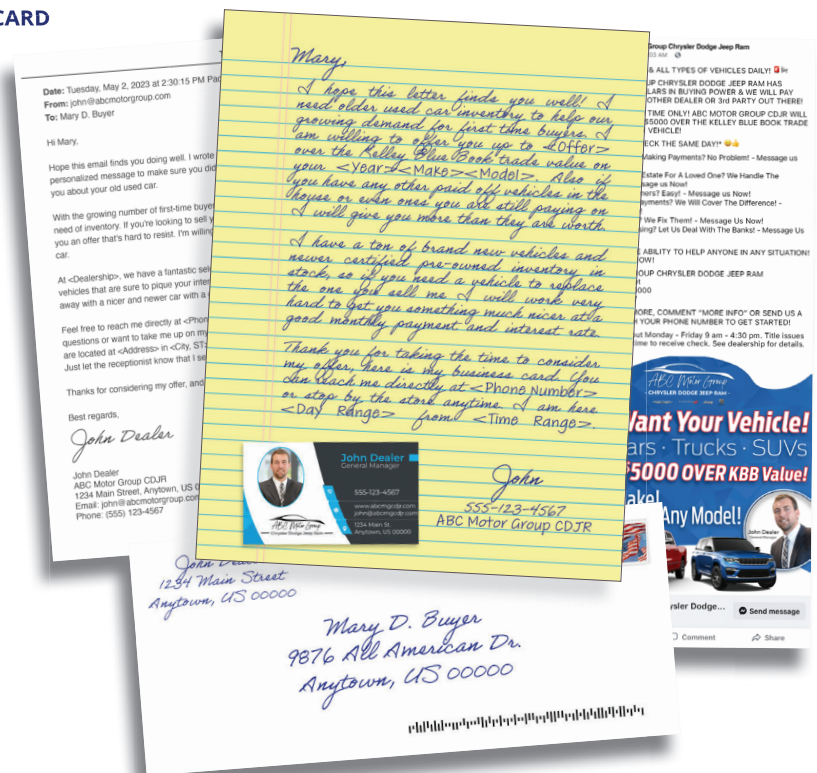 CARD
Date: Tuesday, May 2, 2023 at 2:30:15 PM
From: john@abcmotorgroup.com
To: Mary D. Buyer
Hi Mary,
Hope this email finds you doing well. I wrote
personalized message to make sure you did
you about your old used car.
With the growing number of first-time buye
need of inventory. If you're looking to sell y
you an offer that's hard to resist. I'm willing
car.
At <Dealership>, we have a fantastic sel
vehicles that are sure to pique your inter
away with a nicer and newer car with a
Feel free to reach me directly at <Phon
questions or want to take me up on my
are located at <Address> in <City, ST
Just let the receptionist know that I se
Thanks for considering my offer, and
Best regards,
John Dealer
John Dealer
ABC Motor Group CDJR
1234 Main Street, Anytown, US 0
Email: john@abcmotorgroup.com
Phone: (555) 123-4567
Mary,
I hope this letter finds you well! I
need older used car inventory to help our
growing demand for first time buyers. I
am willing to offer you up to <Offer>
over the Kelley Blue Book trade value on
your <Year><Make><Model>. Also if
you have any other paid off vehicles in the
house or even ones you are still paying on
I will give you more than they are worth.
I have a ton of brand new vehicles and
newer certified pre-owned inventory in
stock, so if you need a vehicle to replace
the one you sell me I will work very
hard to get you something much nicer at a
good monthly payment and interest rate.
Thank you for taking the time to consider
my offer, here is my business card. You
can reach me directly at <Phone Number>
or stop by the store anytime. I am here
<Day Range> from <Time Range>.
John
555-123-4567
ABC Motor Group CDJR
John Dealer
General Manager
555-123-4567
www.abcmgcdjr.com
john@abcmgcdjr.com
1234 Main St.
Anytown, US 00000
ABC Motor Group
Chrysler Dodge Jeep Ram
Group Chrysler Dodge Jeep Ram
:03 AM
& ALL TYPES OF VEHICLES DAILY!
UP CHRYSLER DODGE JEEP RAM HAS
LARS IN BUYING POWER & WE WILL PAY
OTHER DEALER OR 3rd PARTY OUT THERE!
TIME ONLY! ABC MOTOR GROUP CDJR WILL
$5000 OVER THE KELLEY BLUE BOOK TRADE
VEHICLE!
ECK THE SAME DAY!*
Making Payments? No Problem! - Message us
Estate For A Loved One? We Handle The
sage us Now!
ners? Easy! - Message us Now!
ayments? We Will Cover The Difference! -
We Fix Them! - Message Us Now!
sing? Let Us Deal With The Banks! - Message Us
ABILITY TO HELP ANYONE IN ANY SITUATION!
OW!
OUP CHRYSLER DODGE JEEP RAM
t
0000
MORE, COMMENT "MORE INFO" OR SEND US A
H YOUR PHONE NUMBER TO GET STARTED!
out Monday - Friday 9 am - 4:30 pm. Title issues
time to receive check. See dealership for details.
ABC Motor Group
CHRYSLER DODGE JEEP RAM
Want Your Vehicle!
ars · Trucks · SUVs
$5000 OVER KBB Value!
ake!
Any Model!
John Dealer
General Manager
ysler Dodge...
Send message
Comment
Share
John Dealer
1234 Main Street
Anytown, US 00000
Mary D. Buyer
9876 All American Dr.
Anytown, US 00000